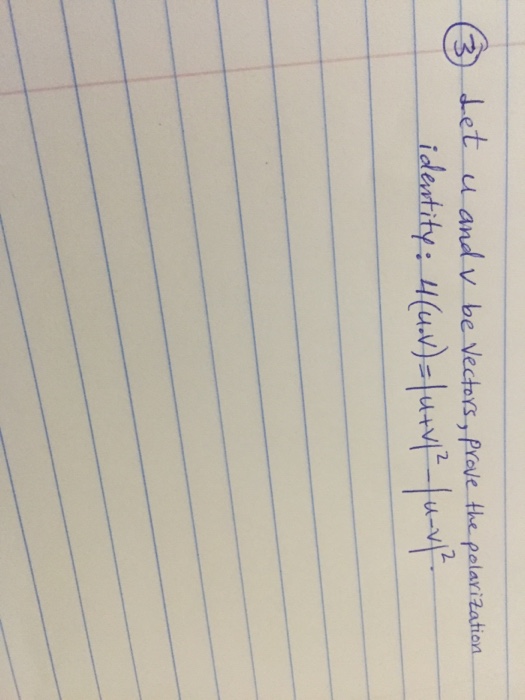 ③ Let u and v be vectors, prove the polarization
identity: 4(u•v)=|u+v|²-|u-v|².